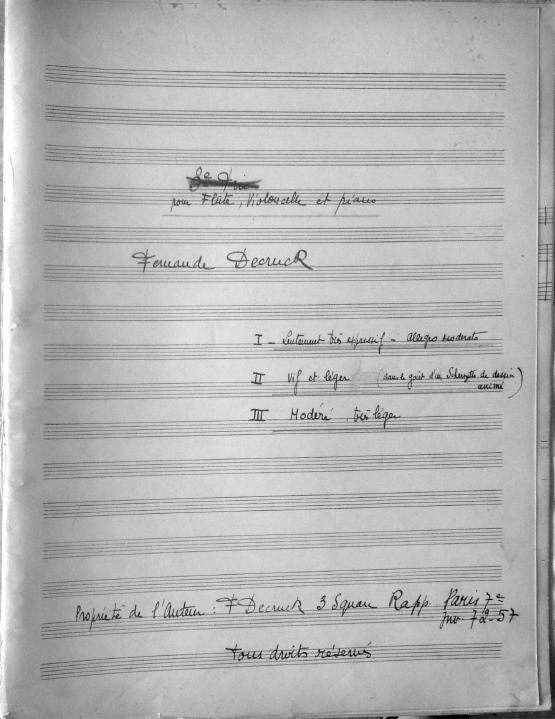 3e Trio
pour Flûte, Violoncelle et piano
Fernande Decruck
I - Lentement très expressif - Allegro moderato
II Vif et léger (dans le goût d'un Scherzetto de dessin
animé)
III Modéré très léger
Propriété de l'Auteur : F Decruck 3 Square Rapp. Paris 7e
Inv. 72-57
Tous droits réservés